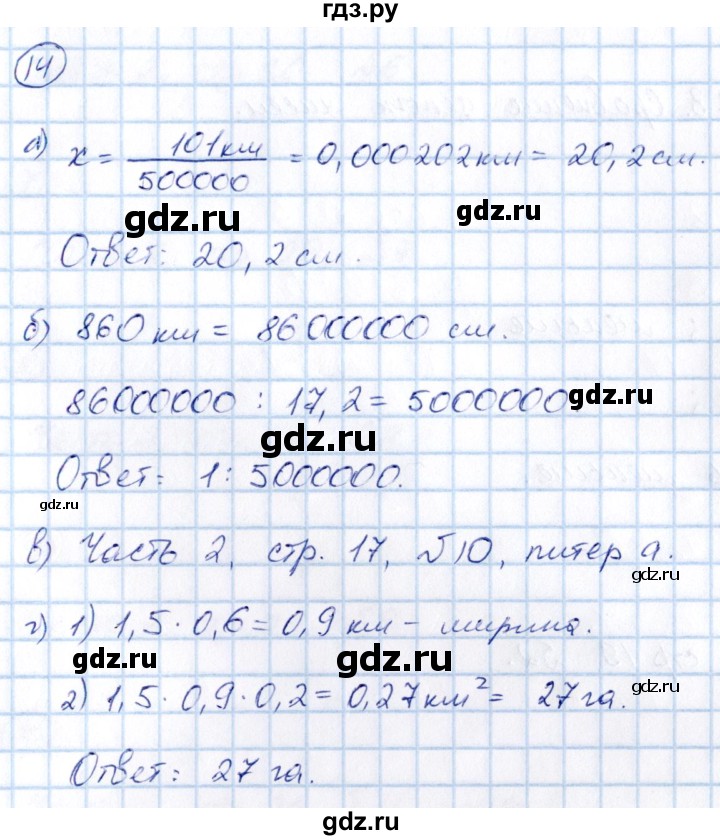 гдз.ру
14
а) x = 101 км / 500000 = 0,000202 км = 20,2 см.
gdz.ru
gdz.ru
Ответ: 20,2 см.
б) 860 км = 86000000 см.
gdz.ru
gdz.ru
86000000 : 17,2 = 5000000.
gdz.ru
gdz.ru
Ответ: 1 : 5000000.
gdz.ru
в) Часть 2, стр. 17, №10, литер а.
gdz.ru
г) 1) 1,5 · 0,6 = 0,9 км - ширина.
gdz.ru
gdz.ru
2) 1,5 · 0,9 · 0,2 = 0,27 км² = 27 га.
gdz.ru
gdz.ru
Ответ: 27 га.
gdz.ru